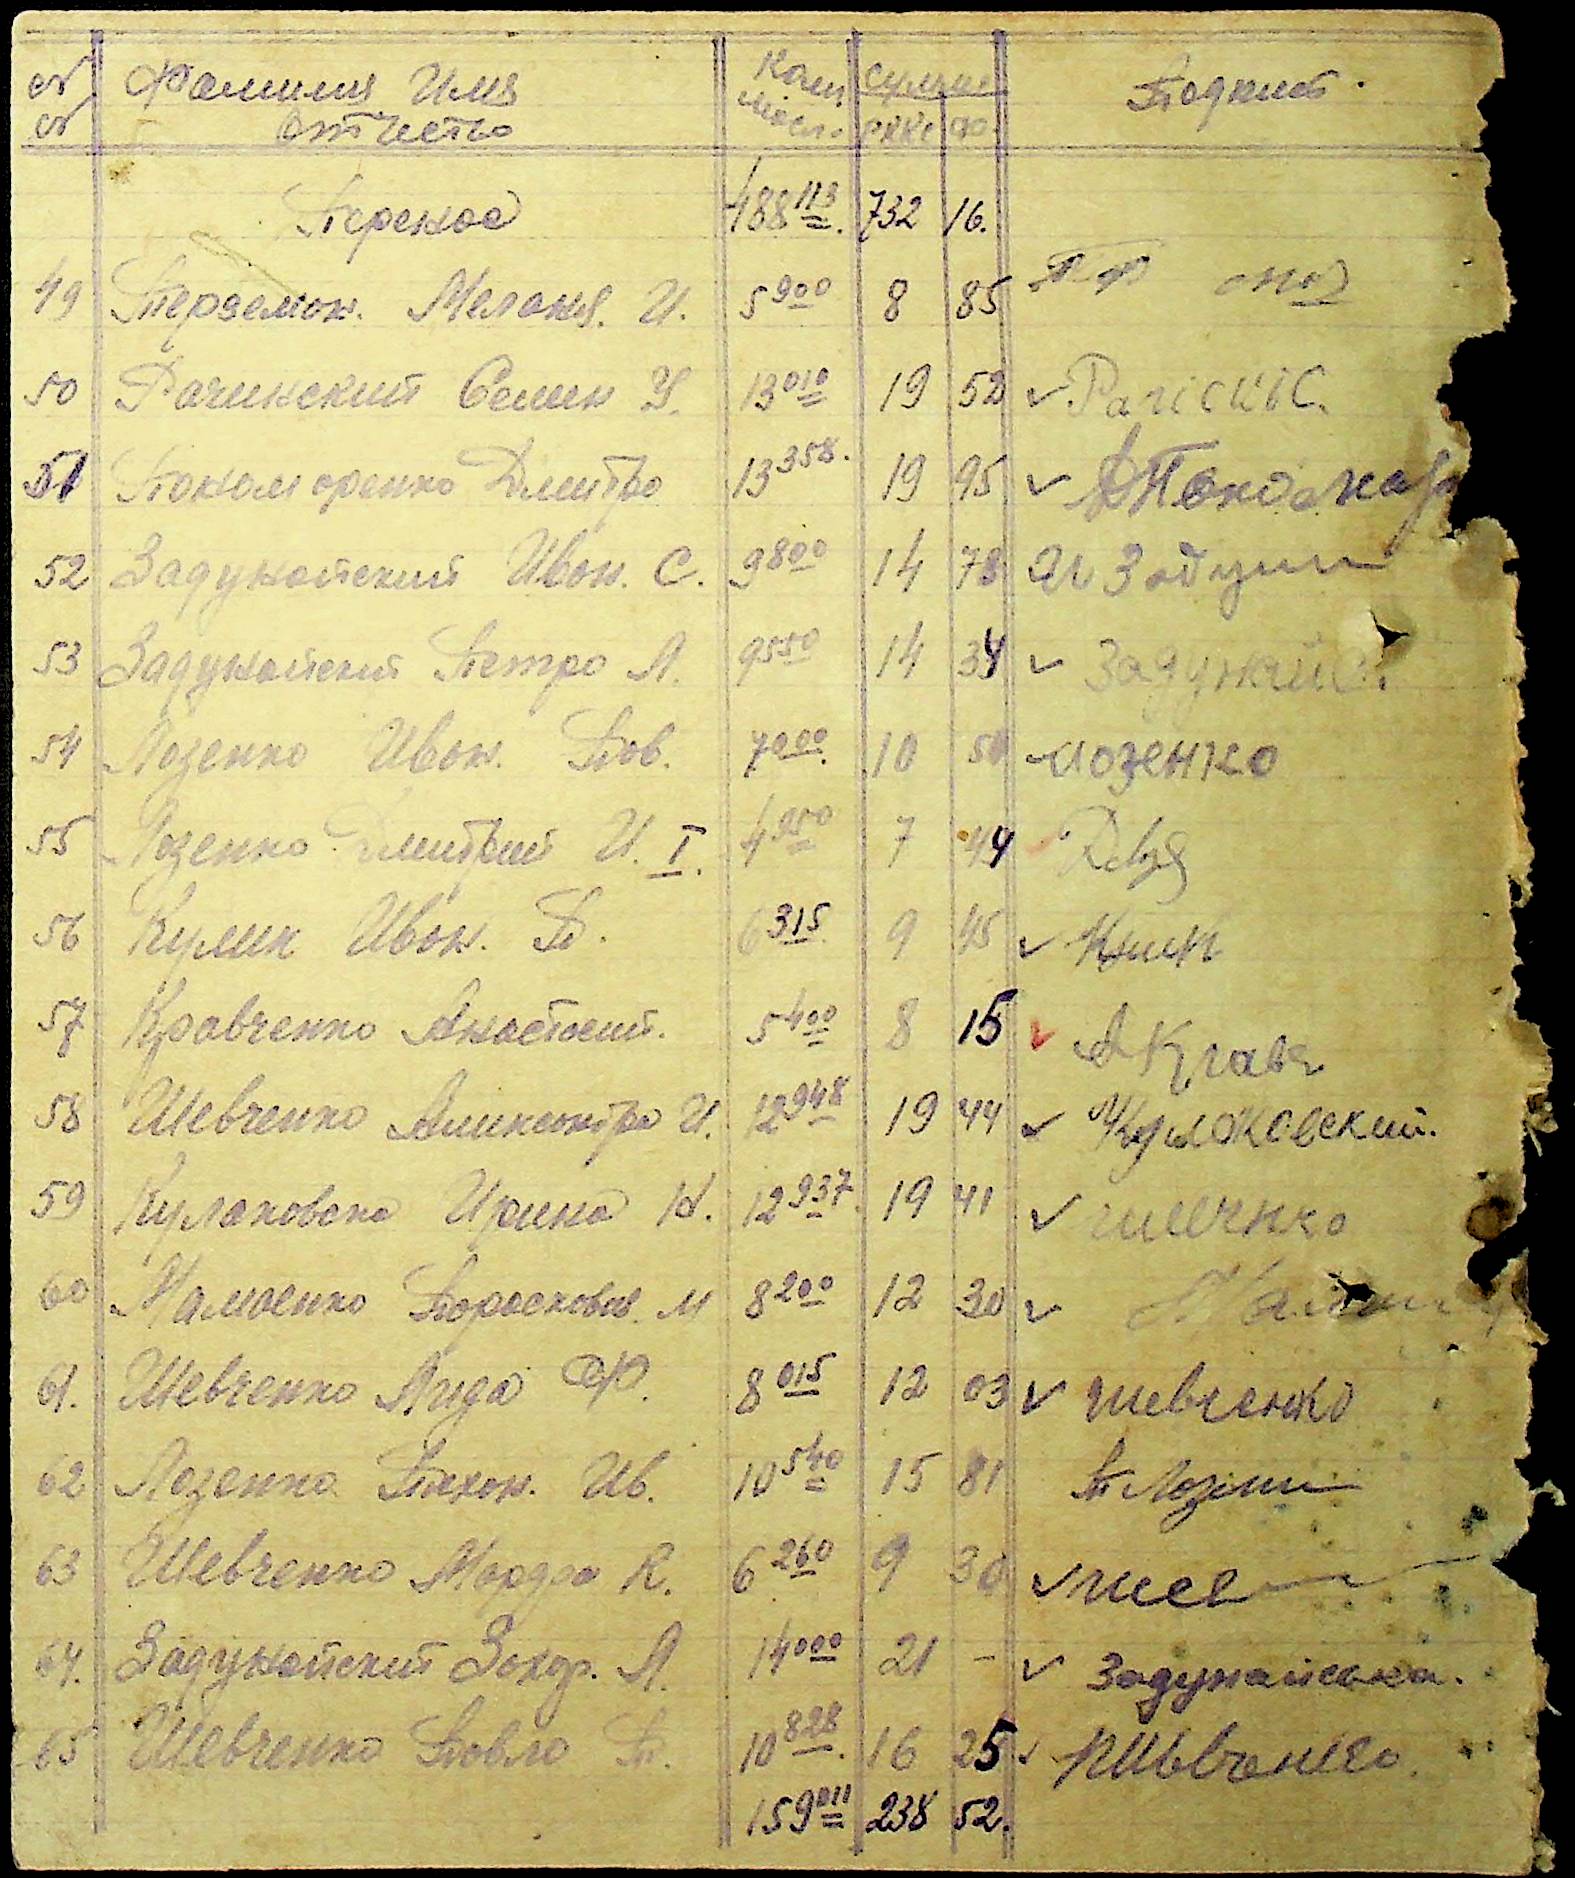 № Фамилия Имя Кол. Сумма Подпись.
№ Отчество масл. руб к.
Перенос 488 113 732 16.
49 Мелания. И. 5 900 8 85
50 Рачинский Семен У. 13 010 19 52
51 Дмитро 13 358. 19 95
52 Задунайский Иван. С. 9 800 14 78
53 Задунайский Петро Л. 9 550 14 34 Задунайс.
54 Лозенко Иван. Пав. 7 000 10 50 Лозенко
55 Лозенко Дмитрий И. I. 4 950 7 44
56 Кулик Иван. П. 6 315 9 45
57 Кравченко Анастасия. 5 400 8 15 А Кравч
58 Шевченко Александра И. 12 948 19 44 Кулаковский.
59 Кулаковска Ирина Н. 12 937. 19 41
60 Парасковия. М 8 200 12 30
61. Шевченко Лида Ф. 8 015 12 03 Шевченко
62 Лозенко Тихон. Ив. 10 540 15 81
63 Шевченко Марфа К. 6 260 9 30 Шев
64. Задунайский Захар. Л. 14 000 21 - Задунайська.
65 Шевченко Павло П. 10 828. 16 25 П Шевченко.
159 011 238 52.